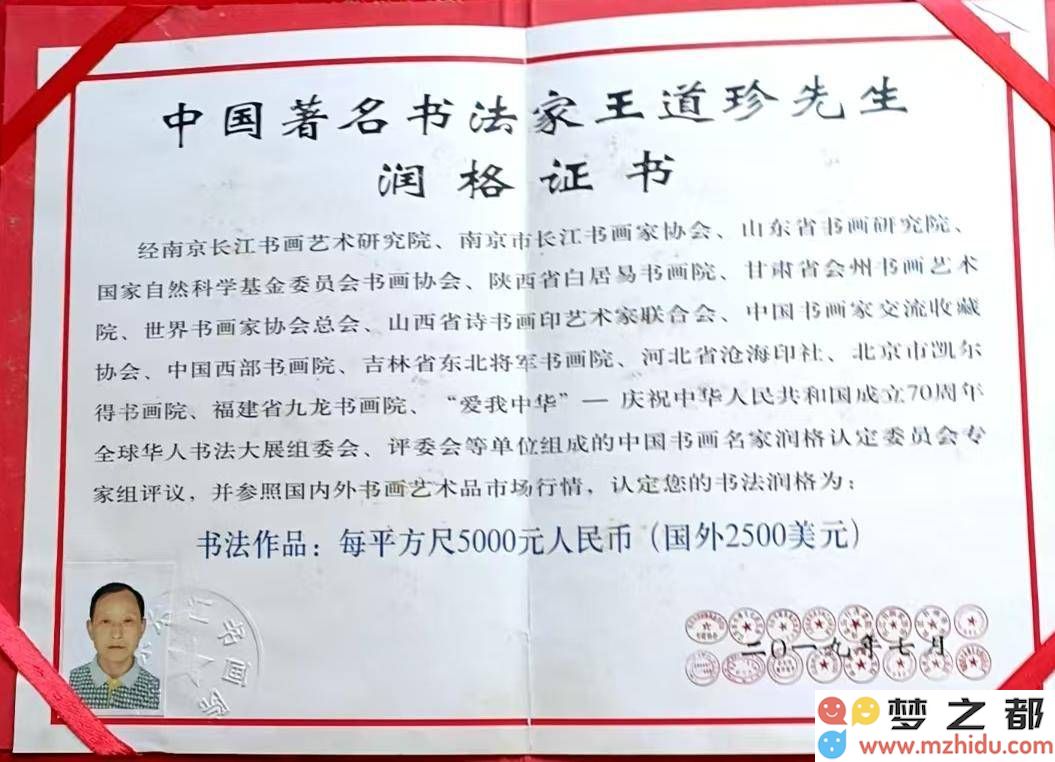 中国著名书法家王道珍先生
润格证书
经南京长江书画艺术研究院、南京市长江书画家协会、山东省书画研究院、
国家自然科学基金委员会书画协会、陕西省白居易书画院、甘肃省会州书画艺术
院、世界书画家协会总会、山西省诗书画印艺术家联合会、中国书画家交流收藏
协会、中国西部书画院、吉林省东北将军书画院、河北省沧海印社、北京市凯尔
得书画院、福建省九龙书画院、“爱我中华”— 庆祝中华人民共和国成立70周年
全球华人书法大展组委会、评委会等单位组成的中国书画名家润格认定委员会专
家组评议，并参照国内外书画艺术品市场行情，认定您的书法润格为：
书法作品：每平方尺5000元人民币（国外2500美元）
二〇一九年七月
梦之都
www.mzhidu.com